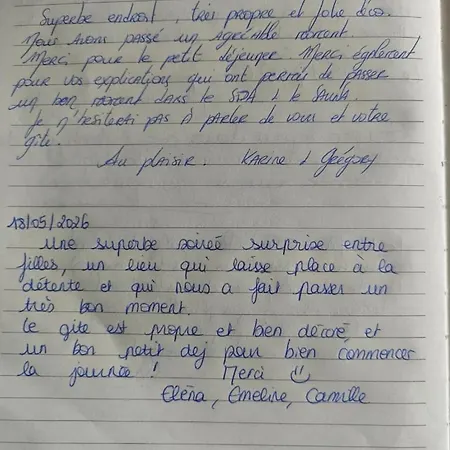 Superbe endroit, très propre et jolie déco.
Nous avons passé un agréable moment.
Merci pour le petit déjeuner. Merci également
pour vos explications qui ont permis de passer
un bon moment dans le SPA & le Sauna.
Je n'hésiterai pas à parler de vous et votre
gîte.
Au plaisir. Karine & Grégory
18/05/2026
Une superbe soirée surprise entre
filles, un lieu qui laisse place à la
détente et qui nous a fait passer un
très bon moment.
Le gîte est propre et bien décoré, et
un bon petit dej pour bien commencer
la journée ! Merci ☺
Eléna, Emeline, Camille